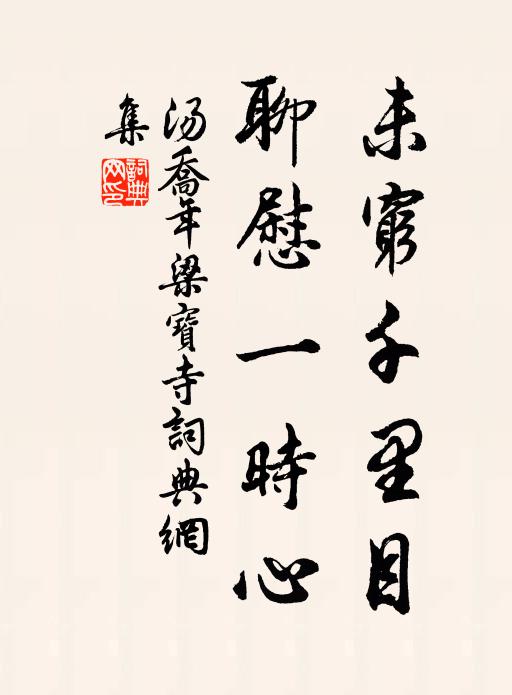 未窮千里目
聊慰一時心
汤喬年梁寶寺詞典網
集
詞典網印